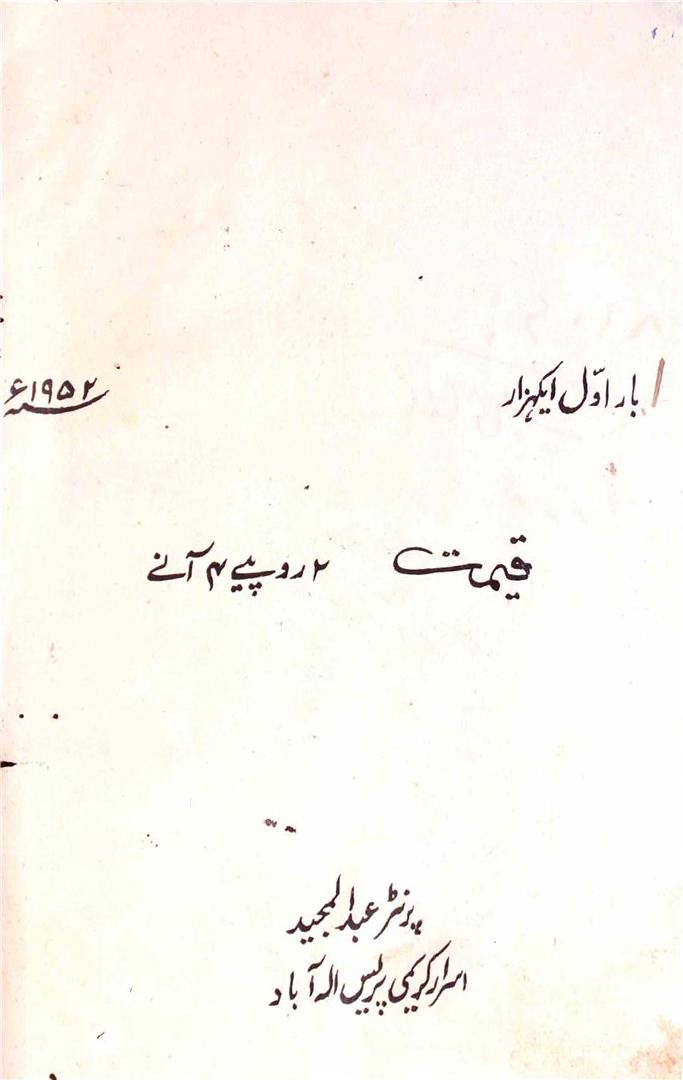 بار اوّل ایکہزار ۱۹۵۲ء
قیمت ۲ روپیے ۴ آنے
پرنٹر عبدالمجید
اسرار کریمی پریس الہ آباد